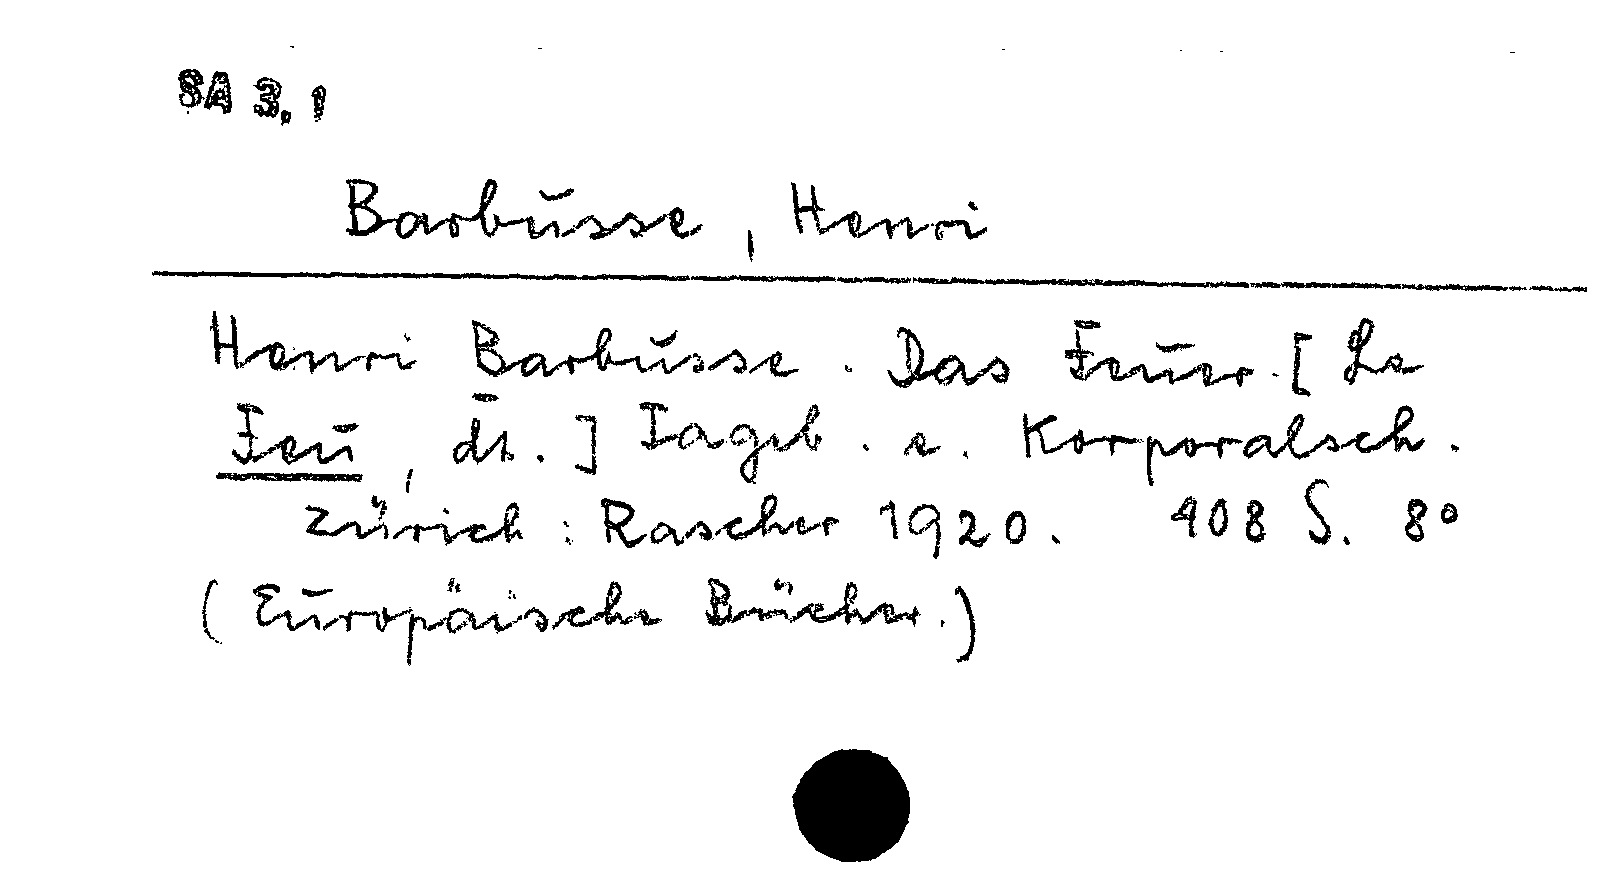 SA 3,1
Barbusse, Henri
Henri Barbusse. Das Feuer. [Le
Feu, dt.] Tageb. e. Korporalsch.
Zürich: Rascher 1920. 408 S. 8°
(Europäische Bücher.)